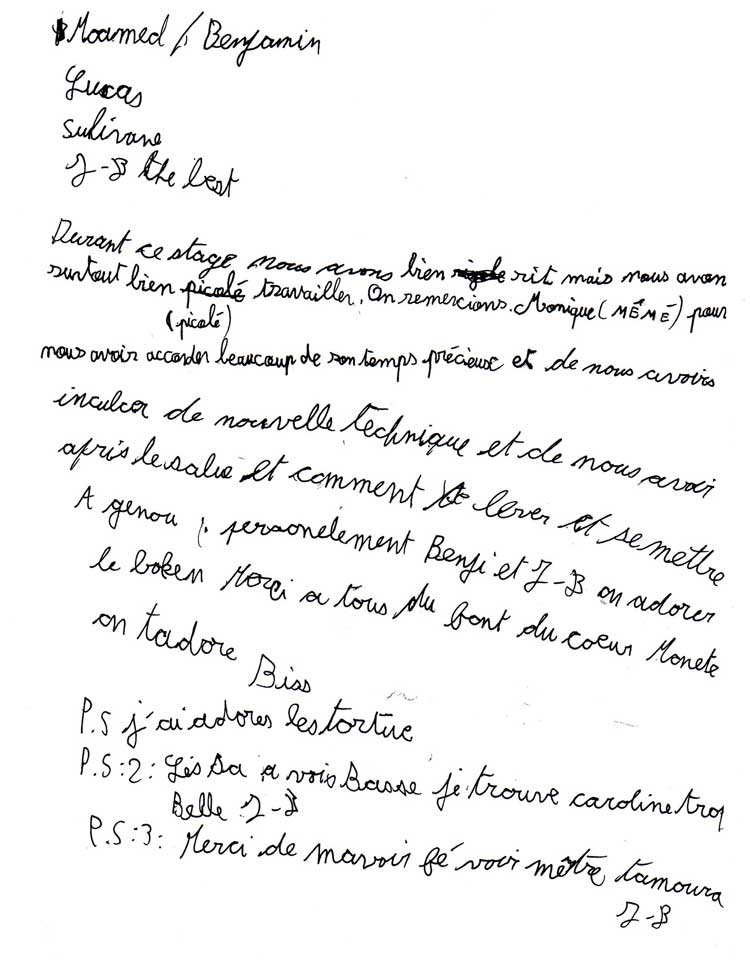 Moamed / Benjamin
Lucas
Sulivane
J-B the best
Durant ce stage nous avons bien rigole rit mais nous avon
surtout bien picolé travailler. On remercions. Monique (MÉMÉ) pour
(picolé)
nous avoir accorder beaucoup de son temps précieuse et de nous avoirs
inculcer de nouvelle technique et de nous avoir
apris le salue et comment se lever et se mettre
A genou ; personelement Benji et J-B on adorer
le boken Merçi a tous du font du coeur Monete
on tadore
Biss
P.S j'ai adores les tortue
P.S:2: Lés sa a vois Basse je trouve caroline trop
Belle J-B
P.S:3: Merci de mavoir fé voir mètre tamoura
J-B